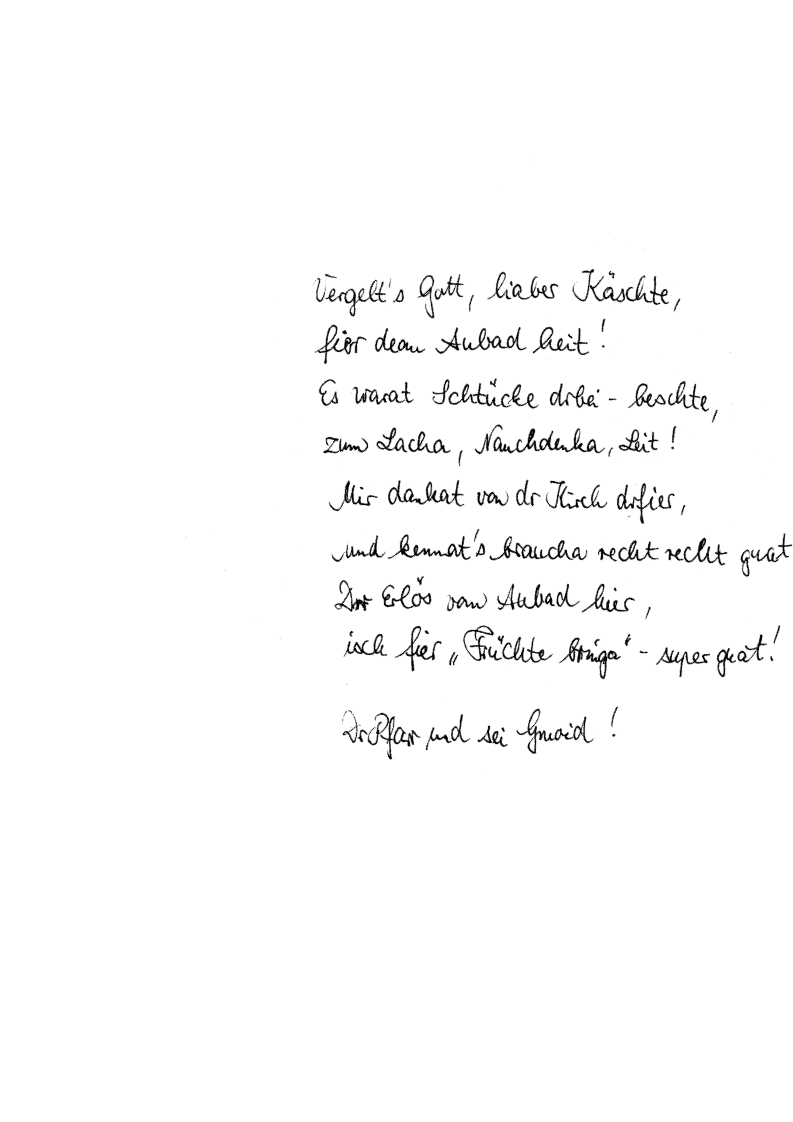 Vergelt's Gott, liaber Käschte,
fier dean Aubad heit!
Es warat Schtücke drbei - beschte,
zum Lacha, Nauchdenka, Leit!
Mir dankat von dr Kirch drfier,
und kennat's braucha recht recht guat
Dr Erlös vom Aubad hier,
isch fier „Früchte bringa" - super guat!
Dr Pfarr und sei Gmoid!